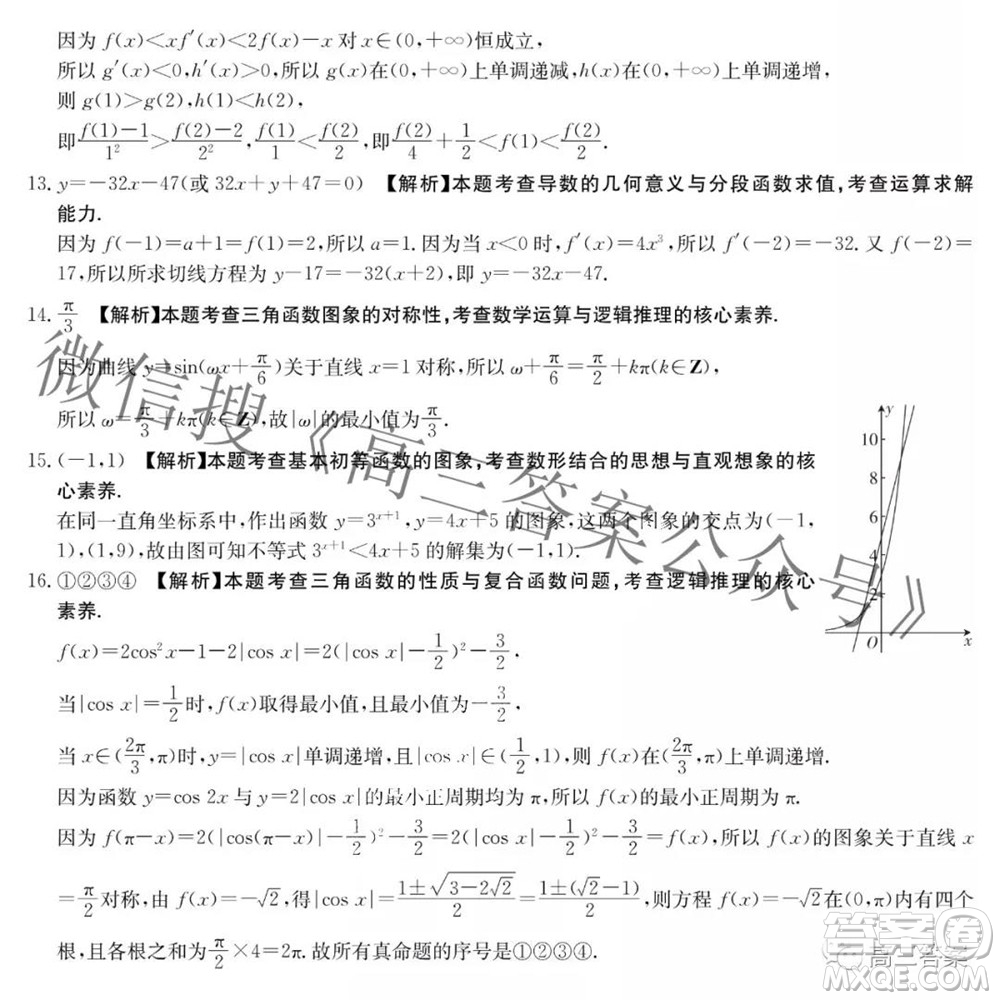 因为 f(x)<xf′(x)<2f(x)-x 对 x∈(0,+∞)恒成立,
所以 g′(x)<0,h′(x)>0,所以 g(x)在(0,+∞)上单调递减,h(x)在(0,+∞)上单调递增,
则 g(1)>g(2),h(1)<h(2),
即 (f(1)-1)/1²>(f(2)-2)/2²,f(1)/1<f(2)/2,即 f(2)/4+1/2<f(1)<f(2)/2.
13. y=-32x-47(或 32x+y+47=0) 【解析】本题考查导数的几何意义与分段函数求值,考查运算求解
能力.
因为 f(-1)=a+1=f(1)=2,所以 a=1.因为当 x<0 时,f′(x)=4x³,所以 f′(-2)=-32.又 f(-2)=
17,所以所求切线方程为 y-17=-32(x+2),即 y=-32x-47.
14. π/3 【解析】本题考查三角函数图象的对称性,考查数学运算与逻辑推理的核心素养.
因为曲线 y=sin(ωx+π/6)关于直线 x=1 对称,所以 ω+π/6=π/2+kπ(k∈Z),
所以 ω=π/3+kπ(k∈Z),故|ω|的最小值为π/3.
15. (-1,1) 【解析】本题考查基本初等函数的图象,考查数形结合的思想与直观想象的核
心素养.
在同一直角坐标系中,作出函数 y=3ˣ⁺¹,y=4x+5 的图象,这两个图象的交点为(-1,
1),(1,9),故由图可知不等式 3ˣ⁺¹<4x+5 的解集为(-1,1).
y
10
8
6
4
2
O
x
16. ①②③④ 【解析】本题考查三角函数的性质与复合函数问题,考查逻辑推理的核心
素养.
f(x)=2cos²x-1-2|cos x|=2(|cos x|-1/2)²-3/2.
当|cos x|=1/2时,f(x)取得最小值,且最小值为-3/2.
当 x∈(2π/3,π)时,y=|cos x|单调递增,且|cos x|∈(1/2,1),则 f(x)在(2π/3,π)上单调递增.
因为函数 y=cos 2x 与 y=2|cos x|的最小正周期均为 π,所以 f(x)的最小正周期为 π.
因为 f(π-x)=2(|cos(π-x)|-1/2)²-3/2=2(|cos x|-1/2)²-3/2=f(x),所以 f(x)的图象关于直线 x
=π/2对称,由 f(x)=-√2,得|cos x|=(1±√(3-2√2))/2=(1±(√2-1))/2,所以方程 f(x)=-√2在(0,π)内有四个
根,且各根之和为π/2×4=2π.故所有真命题的序号是①②③④.
微信搜《高三答案公众号》
答案圈
高三答案
MXQE.COM